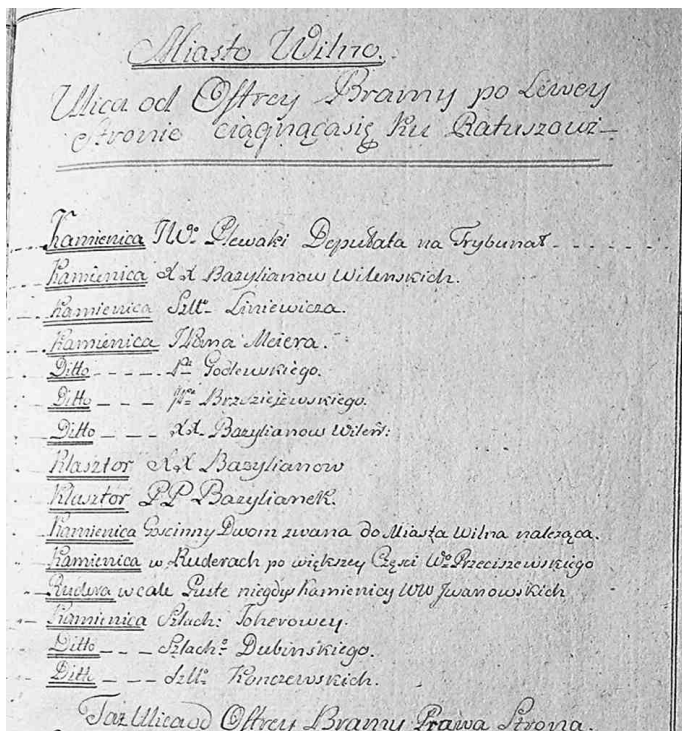 Miasto Wilno.
Ulica od Ostrey Bramy po Lewey
stronie ciągnącasię Ku Ratuszowi
Kamienica JWo Plewaki Deputata na Trybunał
Kamienica XX Bazylianow Wilenskich.
Kamienica Szlto Liniewicza.
Kamienica Meiera.
Ditto Godlewskiego.
Ditto Brzeziejewskiego.
Ditto XX Bazylianow Wileń:
Klasztor XX Bazylianow
Klasztor PP Bazylianek.
Kamienica Goscinny Dwom zwana do Miasta Wilna należąca.
Kamienica w Ruderach po większey Części Wo Przeciszewskiego
Rudera w cale Puste niegdyś Kamienicy WW Jwanowskich
Kamienica Szlach: Toherowey.
Ditto Szlacho Dubińskiego.
Ditto Szlto Konczewskich.
Taż Ulica od Ostrey Bramy Prawa Strona.